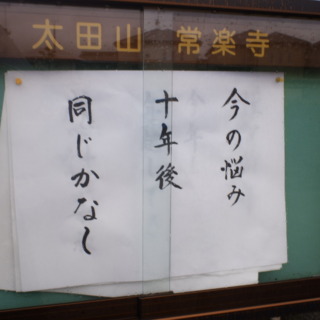 太田山 常楽寺
今の悩み
十年後
同じかなし